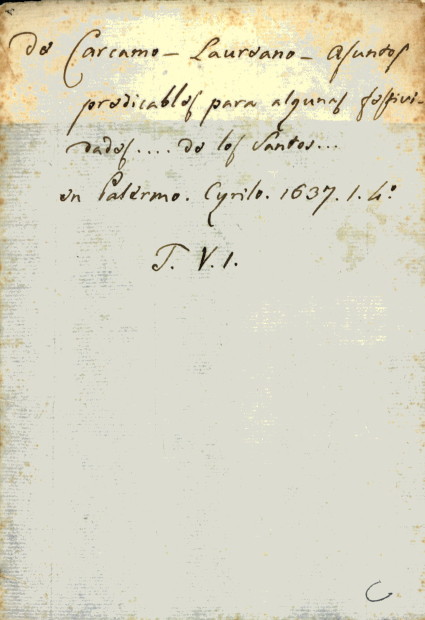 de Carcamo – Laureano – Asuntos
predicables para algunas festivi-
dades.... de los Santos...
en Palermo. Cyrilo. 1637. 1. 4º
T. V. 1.
C